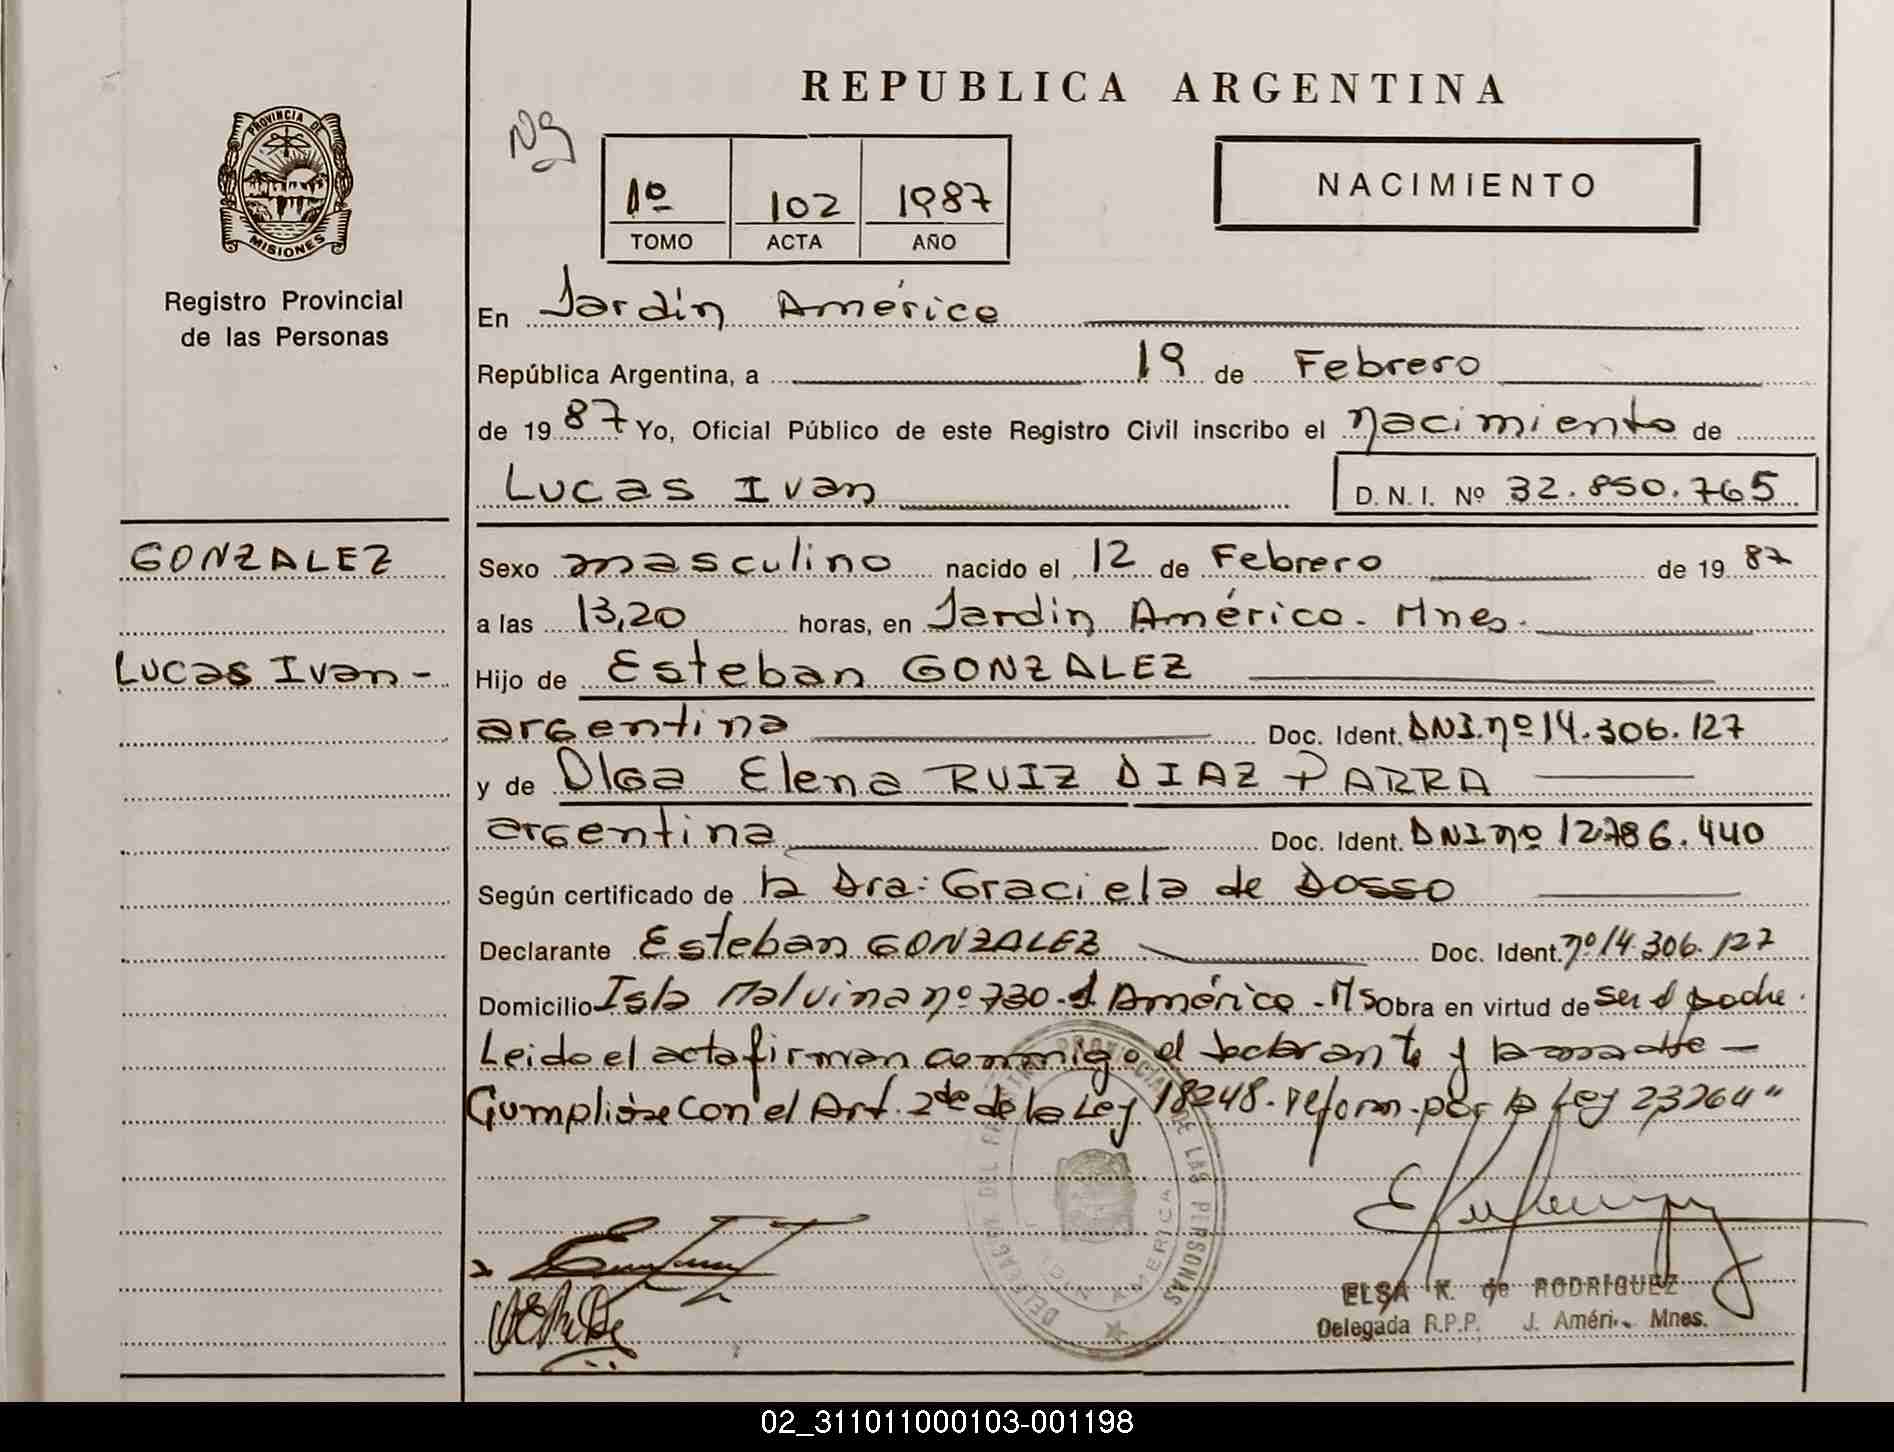 REPUBLICA ARGENTINA
PROVINCIA DE
MISIONES
Registro Provincial
de las Personas
Ng
1º 102 1987
TOMO ACTA AÑO
NACIMIENTO
En Jardín América
República Argentina, a 19 de Febrero
de 1987 Yo, Oficial Público de este Registro Civil inscribo el nacimiento de
Lucas Ivan D.N.I. Nº 32.850.765
GONZALEZ
Lucas Ivan -
Sexo masculino nacido el 12 de Febrero de 1987
a las 13,20 horas, en Jardin América. Mnes.
Hijo de Esteban GONZALEZ
argentina Doc. Ident. DNI. nº 14.306.127
y de Olga Elena RUIZ DIAZ PARRA
argentina Doc. Ident. DNI nº 12.786.440
Según certificado de la Dra: Graciela de Dosso
Declarante Esteban GONZALEZ Doc. Ident. nº 14.306.127
Domicilio Isla Malvina nº 730. J América - Ms Obra en virtud de ser el padre.
Leido el acta firman conmigo el declarante y la madre —
Cumplióse con el Art. 2de de la Ley 18248. reform. por la Ley 23264"
PROVINCIAL DE LAS PERSONAS
AMERICA
ELSA K. de RODRIGUEZ
Delegada R.P.P. J. Améri. Mnes.
02_311011000103-001198